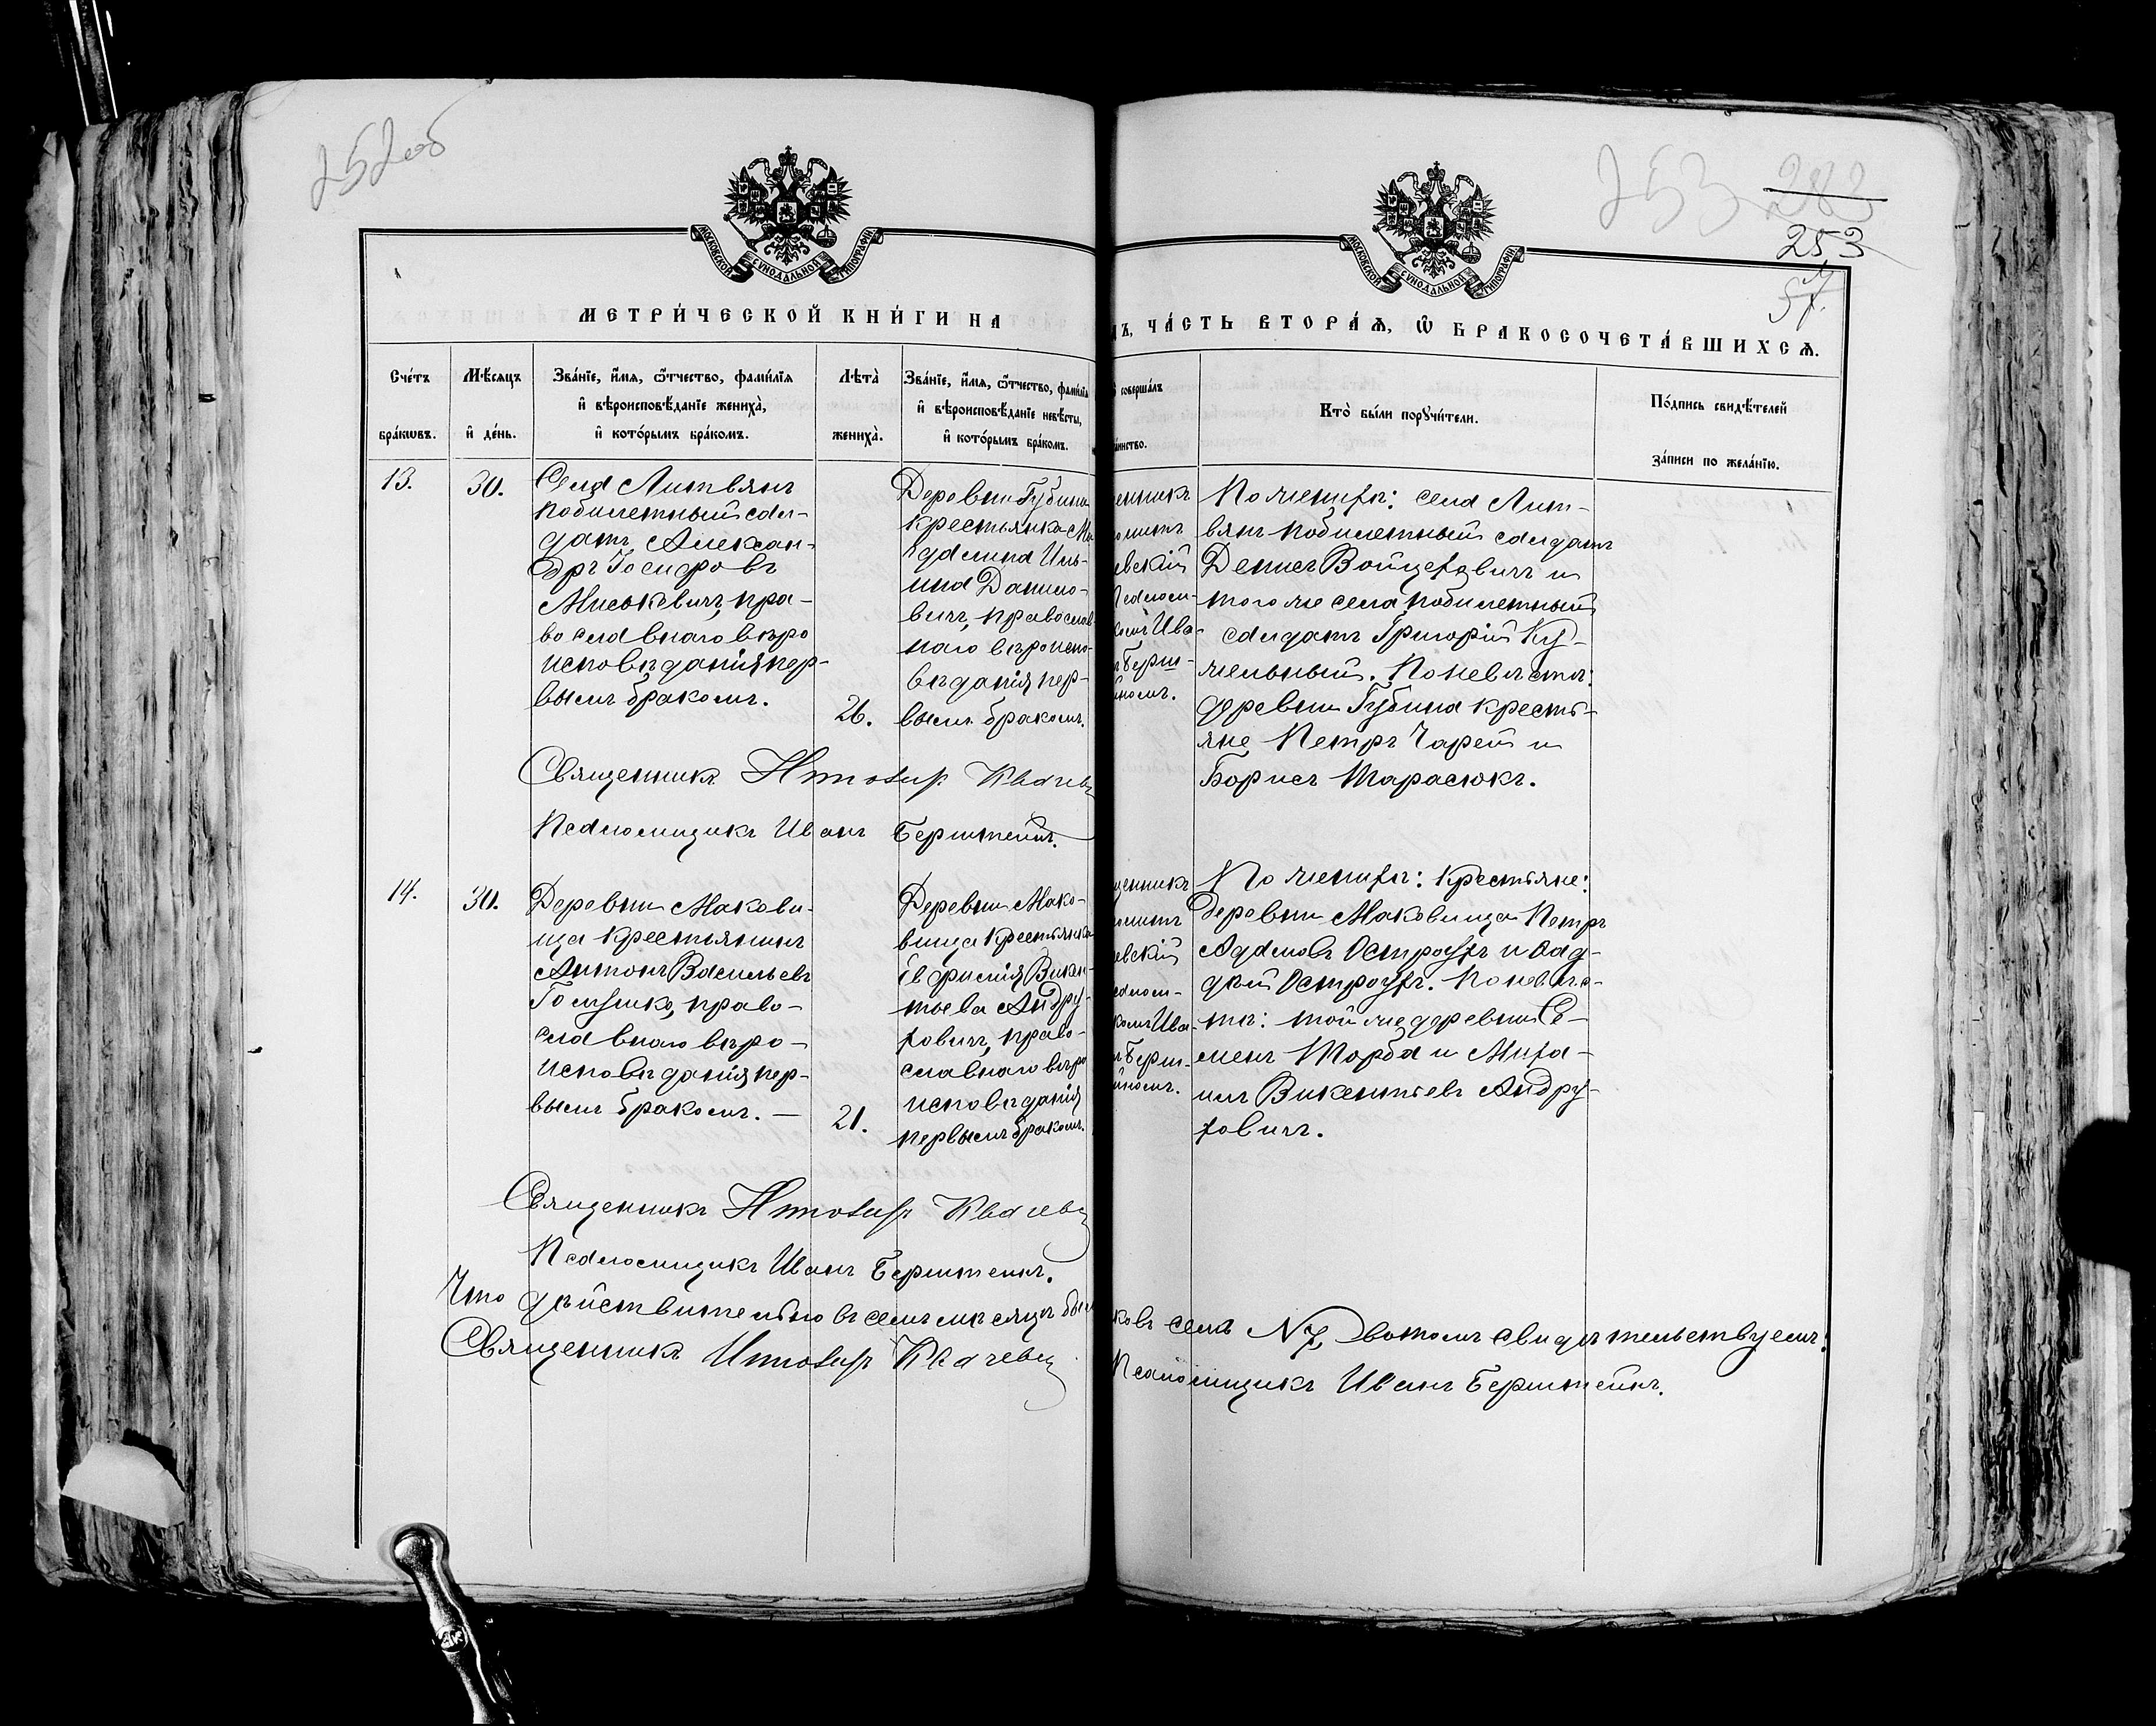 252об
253
282
253
57.
МОСКОВСКОЙ СУНОДАЛЬНОЙ ТИПОГРАФІИ
МОСКОВСКОЙ СУНОДАЛЬНОЙ ТИПОГРАФІИ
МЕТРИ́ЧЕСКОЙ КНИ́ГИ НА
ЧА́СТЬ ВТОРА́Ѧ, Ѡ҆ БРАКОСОЧЕТА́ВШИХСѦ.
Сче́тъ
бра́кѡвъ.
Мѣ́сѧцъ
и҆ де́нь.
Зва́нїе, и҆́мѧ, ѻ҆́тчество, фами́лїѧ
и҆ вѣроисповѣ́данїе жениха̀,
и҆ кото́рымъ бра́комъ.
Лѣта̀
жениха̀.
Зва́нїе, и҆́мѧ, ѻ҆́тчество, фами́лїѧ
и҆ вѣроисповѣ́данїе невѣ́сты,
и҆ кото́рымъ бра́комъ.
соверша́лъ
Кто̀ бы́ли порꙋчи́тели.
По́дпись свидѣ́телей
за́писи по жела́нїю.
13.
30.
Села Литвянъ
побилетный сол-
датъ Алексан-
дръ Іосифовъ
Миськевичъ, пра-
вославнаго вѣро
исповѣданія пер-
вымъ бракомъ.
26.
Деревни Губина
крестьянка Ма
гдалина Иль-
ина Данило-
вичъ, православ-
наго вѣроиспо-
вѣданія пер-
вымъ бракомъ.
По женихѣ: села Лит-
вянъ побилетный солдатъ
Денисъ Войцеховичъ и
того же села побилетный
солдатъ Григорій Ку-
жельный. По невѣстѣ:
деревни Губина крестья-
яне Петръ Чарей и
Борисъ Тарасюкъ.
Священникъ
Псаломщикъ Иванъ Берштейнъ.
14.
30.
Деревни Макови-
ща крестьянинъ
Антонъ Васильевъ
Голушко, право-
славнаго вѣро-
исповѣданія пер-
вымъ бракомъ. —
21.
Деревни Мако-
вища крестьянка
Евфимія Викен-
тьева Андру-
ховичъ, право-
славнаго вѣро
исповѣданія
первымъ бракомъ.
По женихѣ: крестьяне:
деревни Маковища Петръ
Адамовъ Остроухъ и Ѳад-
дѣй Остроухъ. По невѣс-
тѣ: той же деревни Се-
менъ Торба и Миха-
илъ Викентьевъ Андру-
ховичъ.
Священникъ
Псаломщикъ Иванъ Берштейнъ.
Что дѣйствительно въ семъ мѣсяцѣ
ковъ семь №7, въ томъ свидѣтельствуемъ:
Священникъ
Псаломщикъ Иванъ Берштейнъ.